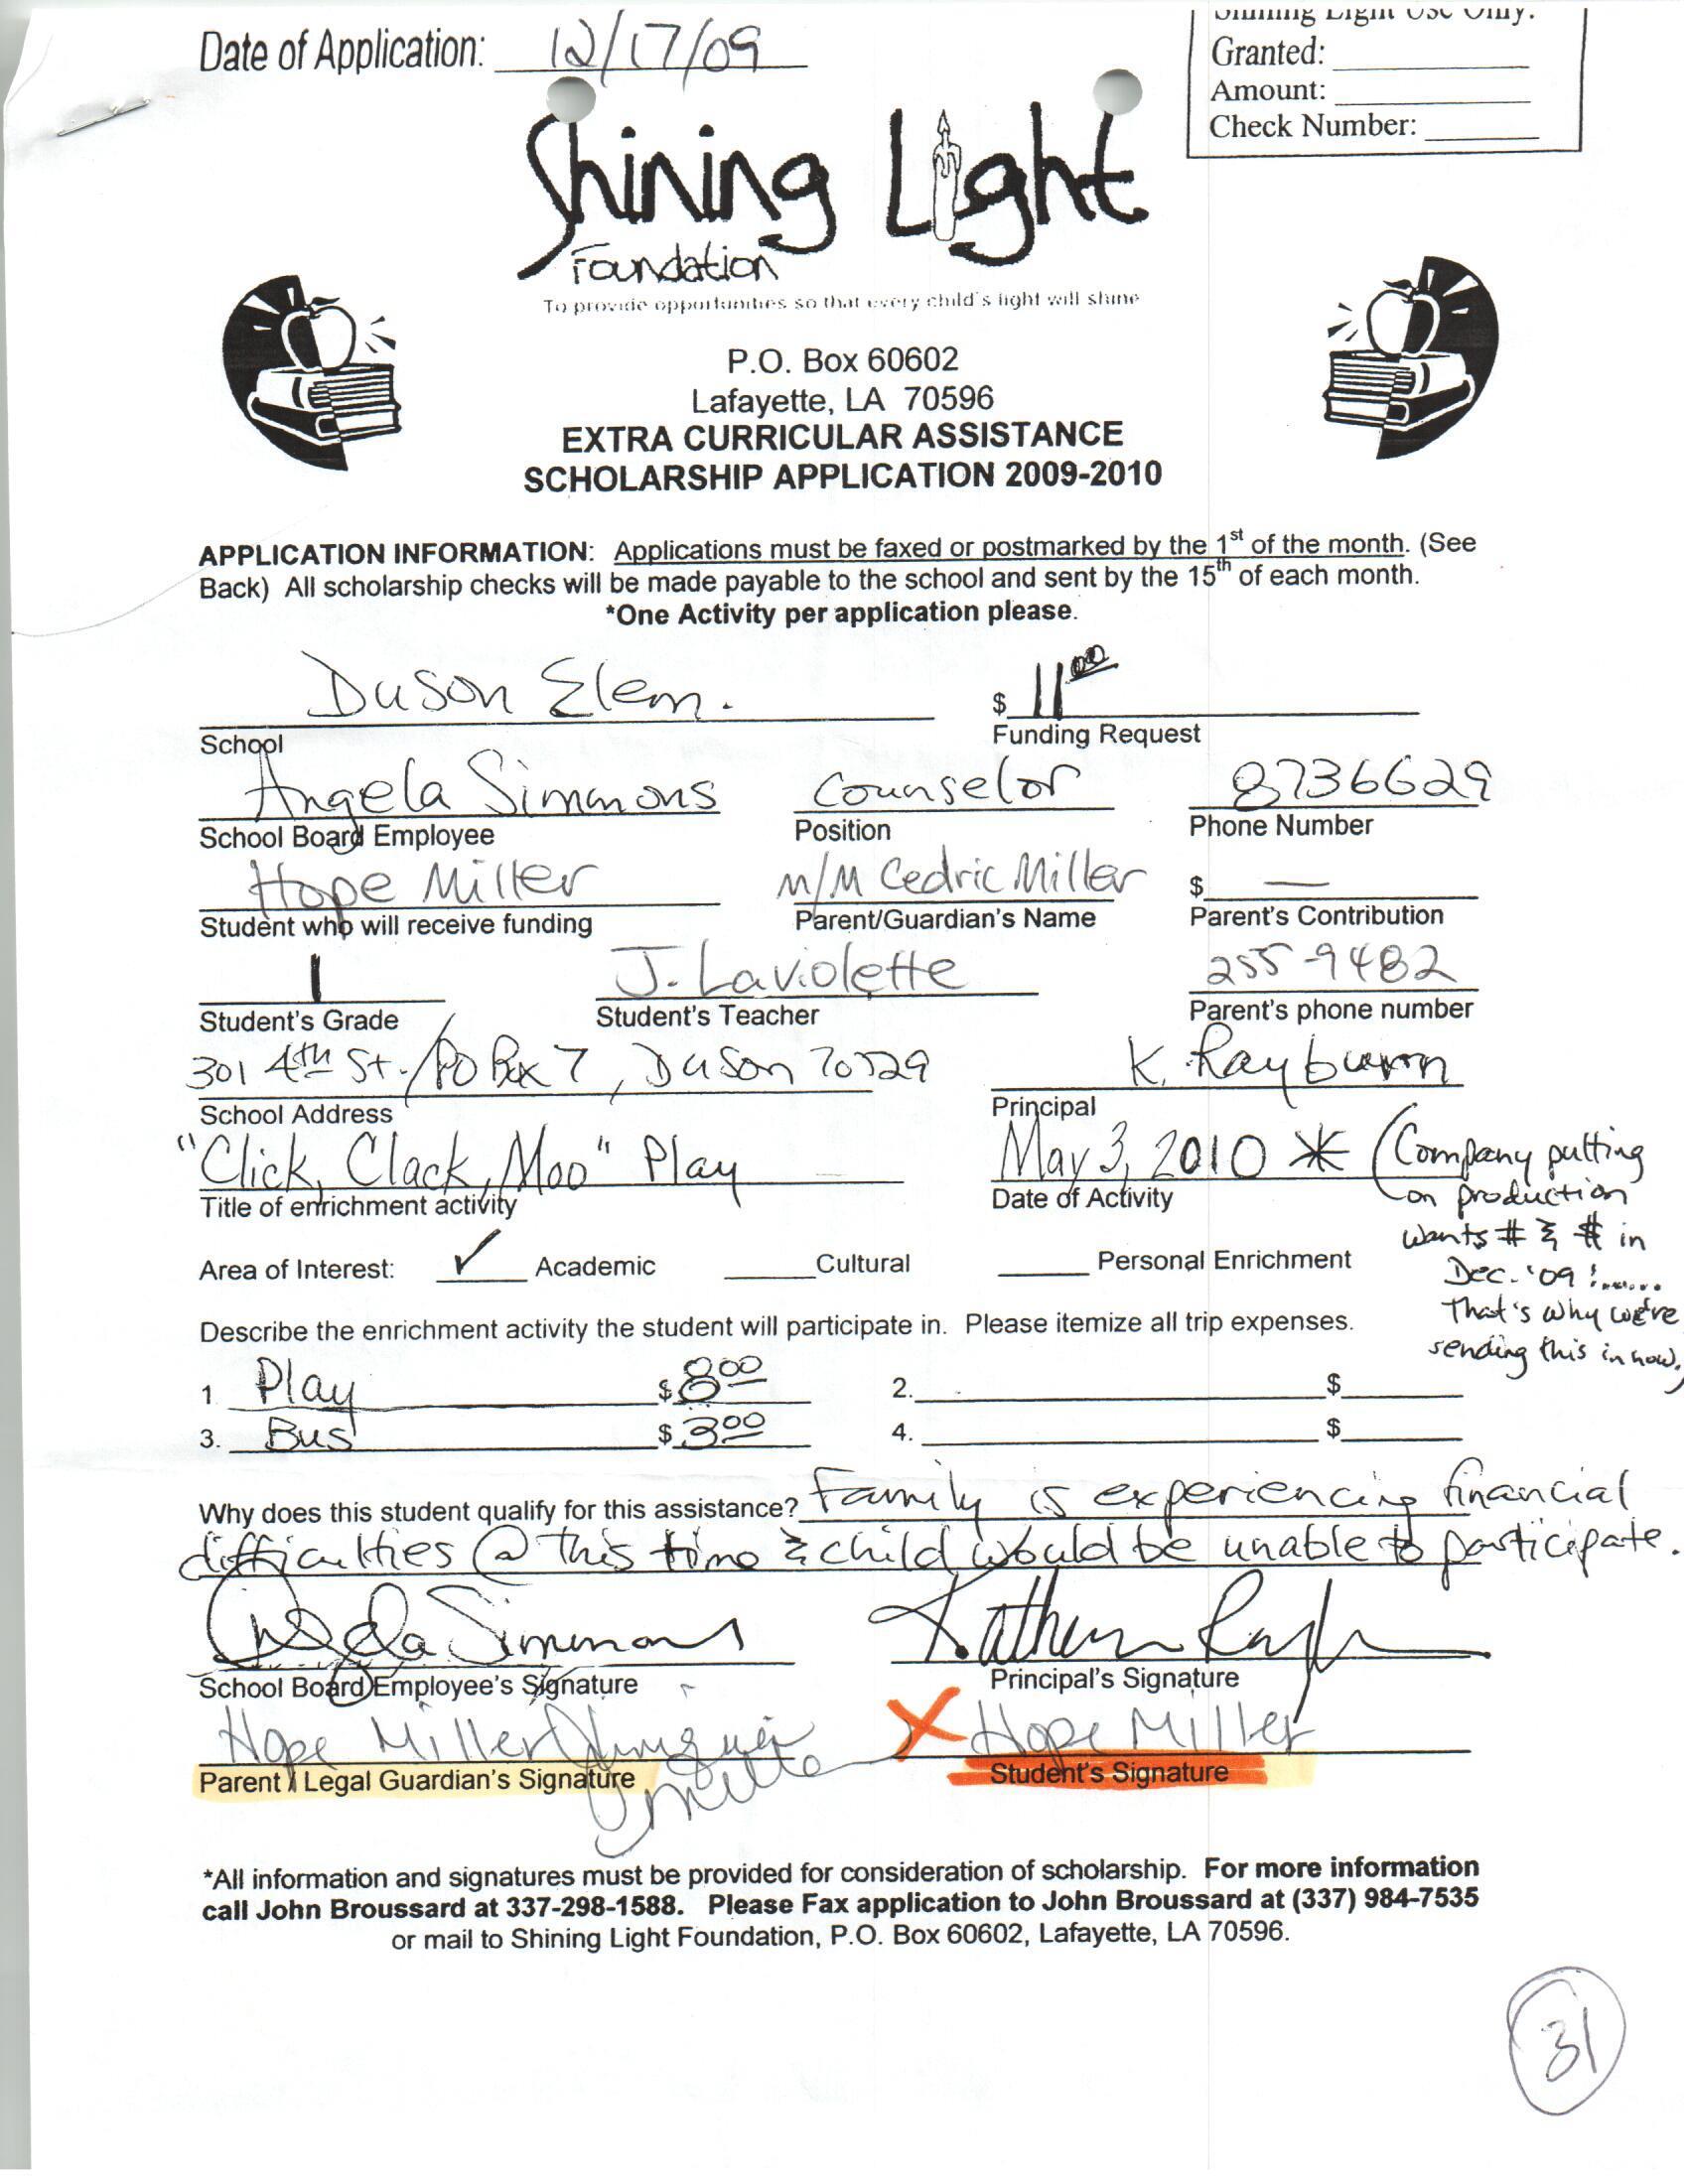 Date of Application: 12/17/09
Shining Light Use Only:
Granted:
Amount:
Check Number:
Shining Light
Foundation
To provide opportunities so that every child's light will shine
P.O. Box 60602
Lafayette, LA 70596
EXTRA CURRICULAR ASSISTANCE
SCHOLARSHIP APPLICATION 2009-2010
APPLICATION INFORMATION: Applications must be faxed or postmarked by the 1st of the month. (See
Back) All scholarship checks will be made payable to the school and sent by the 15th of each month.
*One Activity per application please.
Duson Elem. $ 11 00
School Funding Request
Angela Simmons Counselor 8736629
School Board Employee Position Phone Number
Hope Miller M/M Cedric Miller $ —
Student who will receive funding Parent/Guardian's Name Parent's Contribution
1 J. Laviolette 255-9482
Student's Grade Student's Teacher Parent's phone number
301 4th St./PO Box 7, Duson 70529 K. Rayburn
School Address Principal
"Click, Clack, Moo" Play May 3, 2010 * (Company putting
on production
wants # & $ in
Dec. '09!......
That's why we're
sending this in now.
Title of enrichment activity Date of Activity
Area of Interest: ✓ Academic Cultural Personal Enrichment
Describe the enrichment activity the student will participate in. Please itemize all trip expenses.
1. Play $ 8 00 2. $
3. Bus $ 3 00 4. $
Why does this student qualify for this assistance? Family is experiencing financial
difficulties @ this time & child would be unable to participate.
Angela Simmons
School Board Employee's Signature Principal's Signature
Hope Miller X Hope Miller
Parent / Legal Guardian's Signature Student's Signature
*All information and signatures must be provided for consideration of scholarship. For more information
call John Broussard at 337-298-1588. Please Fax application to John Broussard at (337) 984-7535
or mail to Shining Light Foundation, P.O. Box 60602, Lafayette, LA 70596.
31